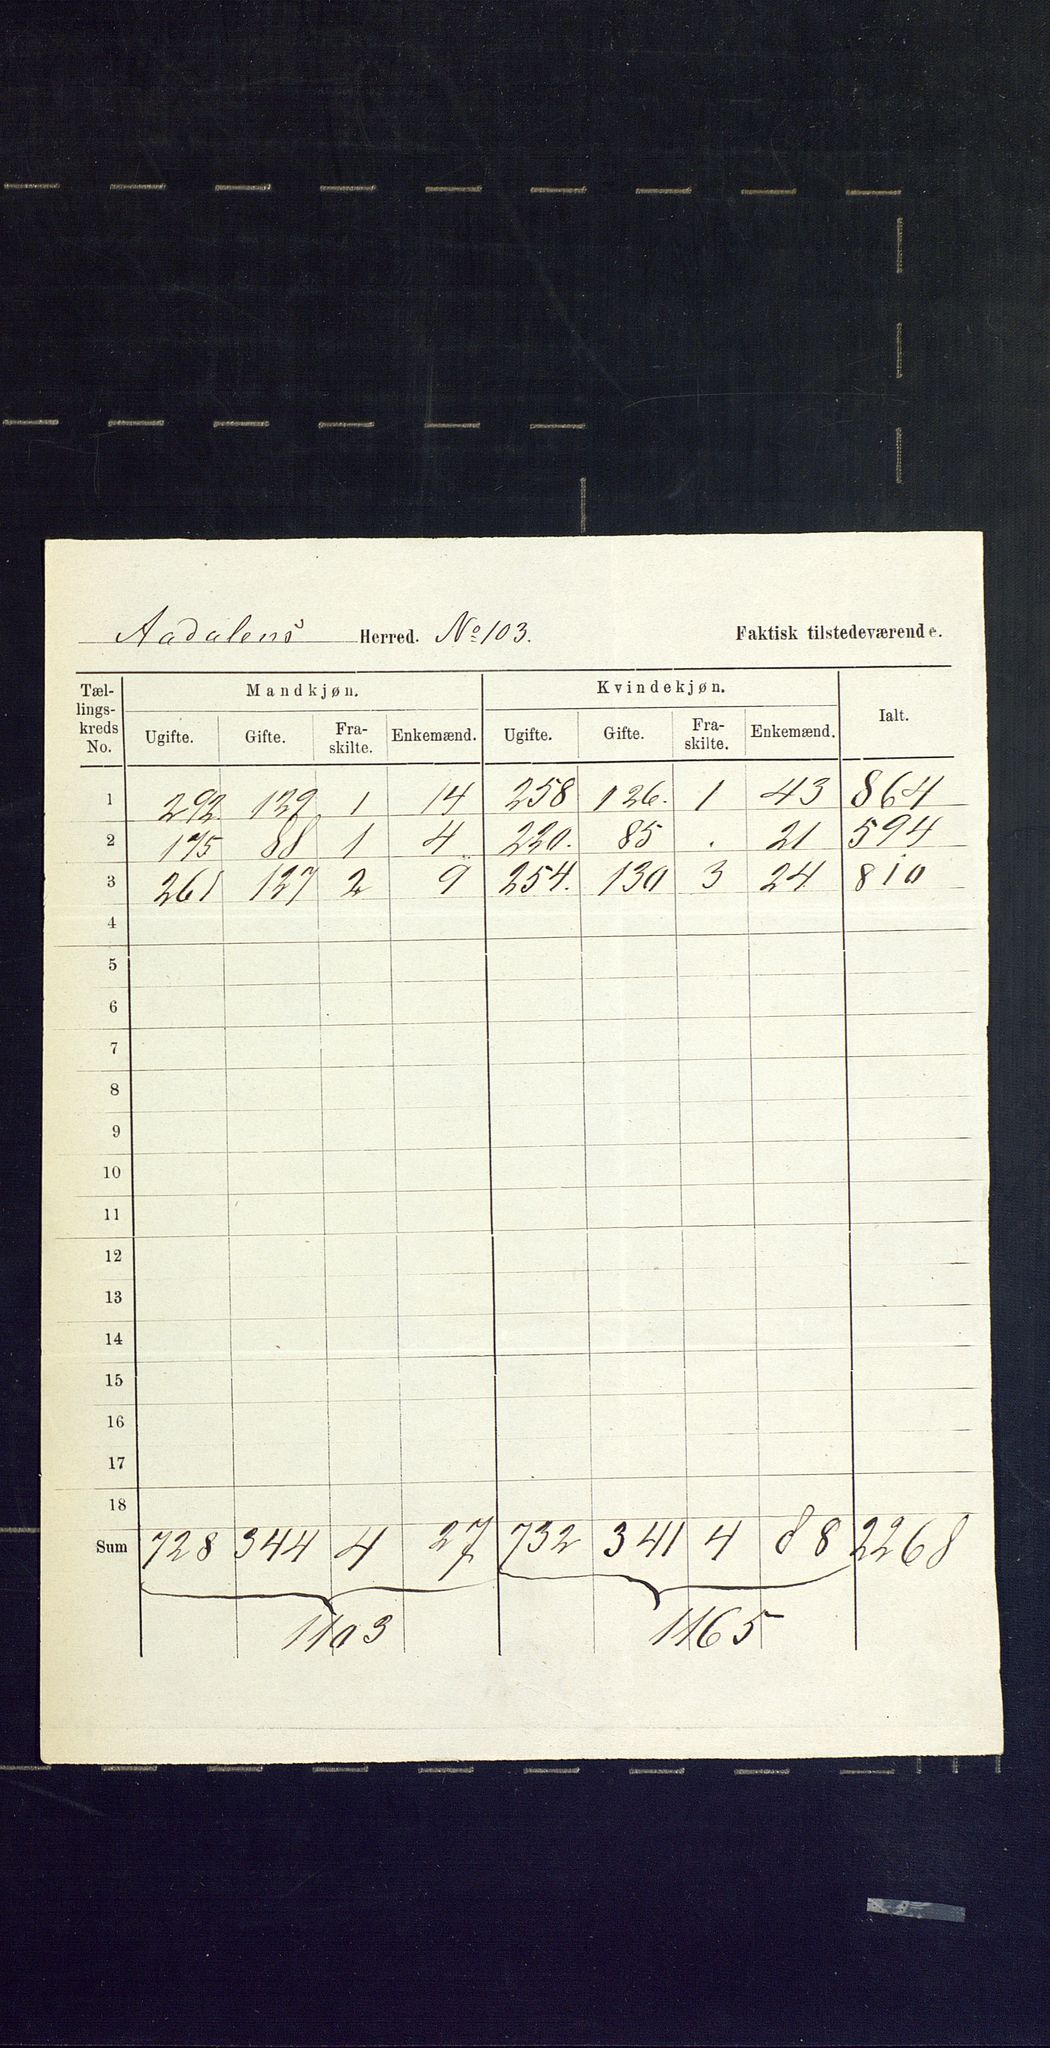 Aadalens Herred. No 103. Faktisk tilstedeværende.
Tællingskreds No. Mandkjøn. Kvindekjøn. Ialt.
Ugifte. Gifte. Fraskilte. Enkemænd. Ugifte. Gifte. Fraskilte. Enkemænd.
1 292 129 1 14 258 126. 1 43 864
2 175 88 1 4 220. 85 . 21 594
3 261 127 2 9 254. 130 3 24 810
4
5
6
7
8
9
10
11
12
13
14
15
16
17
18
Sum 728 344 4 27 732 341 4 88 2268
1103 1165